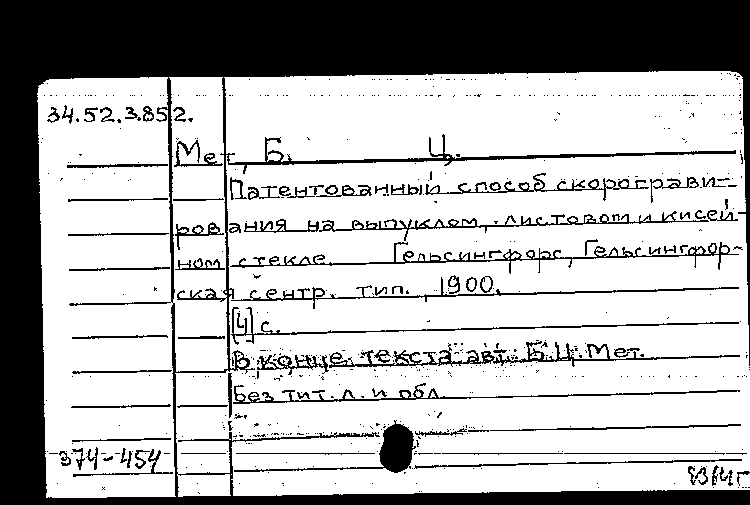 34.52.3.852.
Мет, Б. Ц.
Патентованный способ скорограви-
рования на выпуклом, листовом и кисей-
ном стекле. Гельсингфорс, Гельсингфор-
ская сентр. тип., 1900.
[4] с.
В конце текста авт: Б.Ц. Мет.
Без тит. л. и обл.
374-454